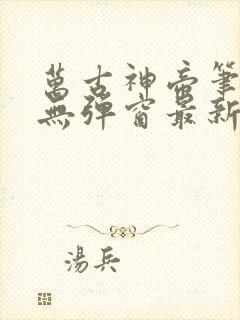 萬古神帝筆
無彈窗最新
湯兵